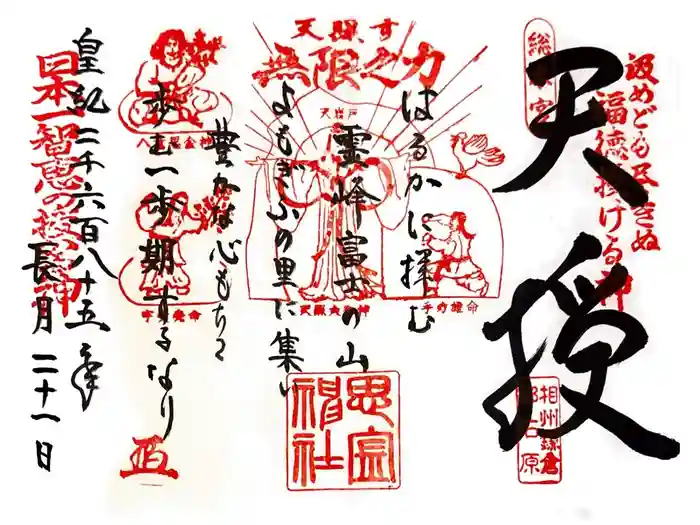 汲めども尽きぬ
福徳授ける神
天授
相州鎌倉
天照す
無限之力
天岩戸
手力雄命
はるかに拝む
霊峰富士の山
よもぎふの里に集い
豊かな心もちて
歩む一歩期するなり
思金神社
八意思金神
日本一智恵の授け神
皇紀二千六百八十五年
長月二十一日